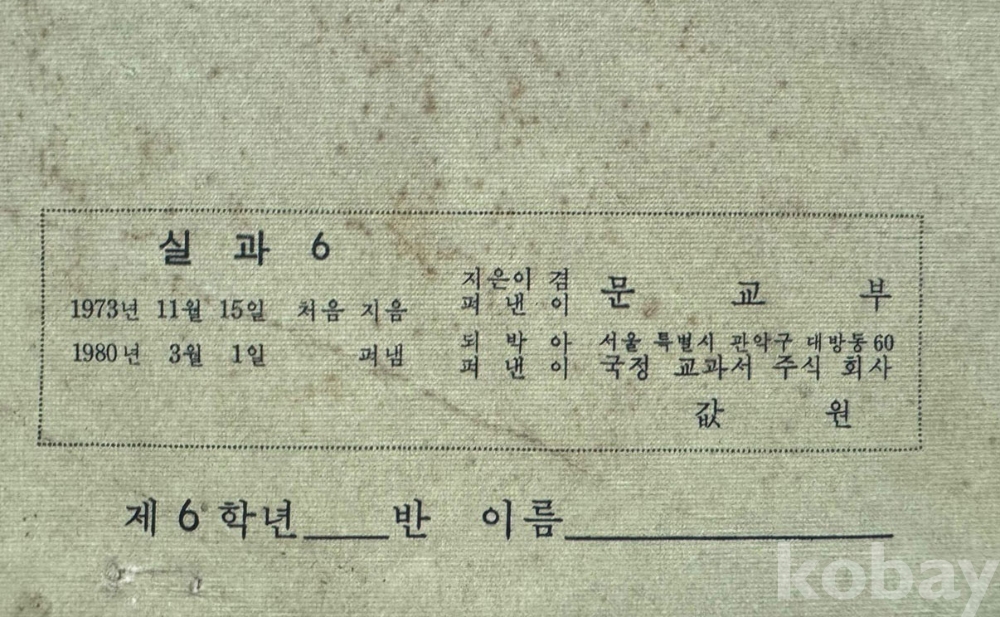 실 과 6
1973년 11월 15일 처음 지음
1980년 3월 1일 펴냄
지은이 겸
펴 낸 이 문 교 부
되 박 아 서울 특별시 관악구 대방동 60
펴 낸 이 국정 교과서 주식 회사
값 원
제 6 학년____반 이름____________
kobay